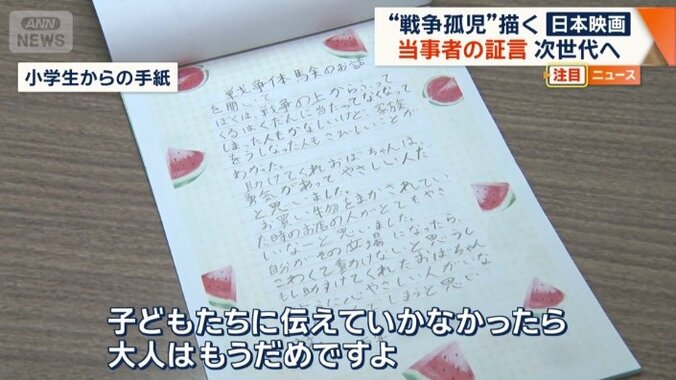 ANN NEWS
“戦争孤児”描く 日本映画
当事者の証言 次世代へ
注目 ニュース
小学生からの手紙
戦争体験のお話
を聞いて
ぼくは、戦争の上からふって
くるばくだんに当たってなくなって
しまった人もかなしいけど、家族
をうしなった人もさみしいことが
わかった。
助けてくれたおばちゃんは、
勇気があってやさしい人だ
と思いました。
お買い物をまかされてい
た時のお店の人がとてもやさ
しいなーと思いました。
自分がその立場になったら、
こわくて動けないと思うし
もし助けてくれたおばちゃん
やさしい人がいな
と思い
子どもたちに伝えていかなかったら
大人はもうだめですよ